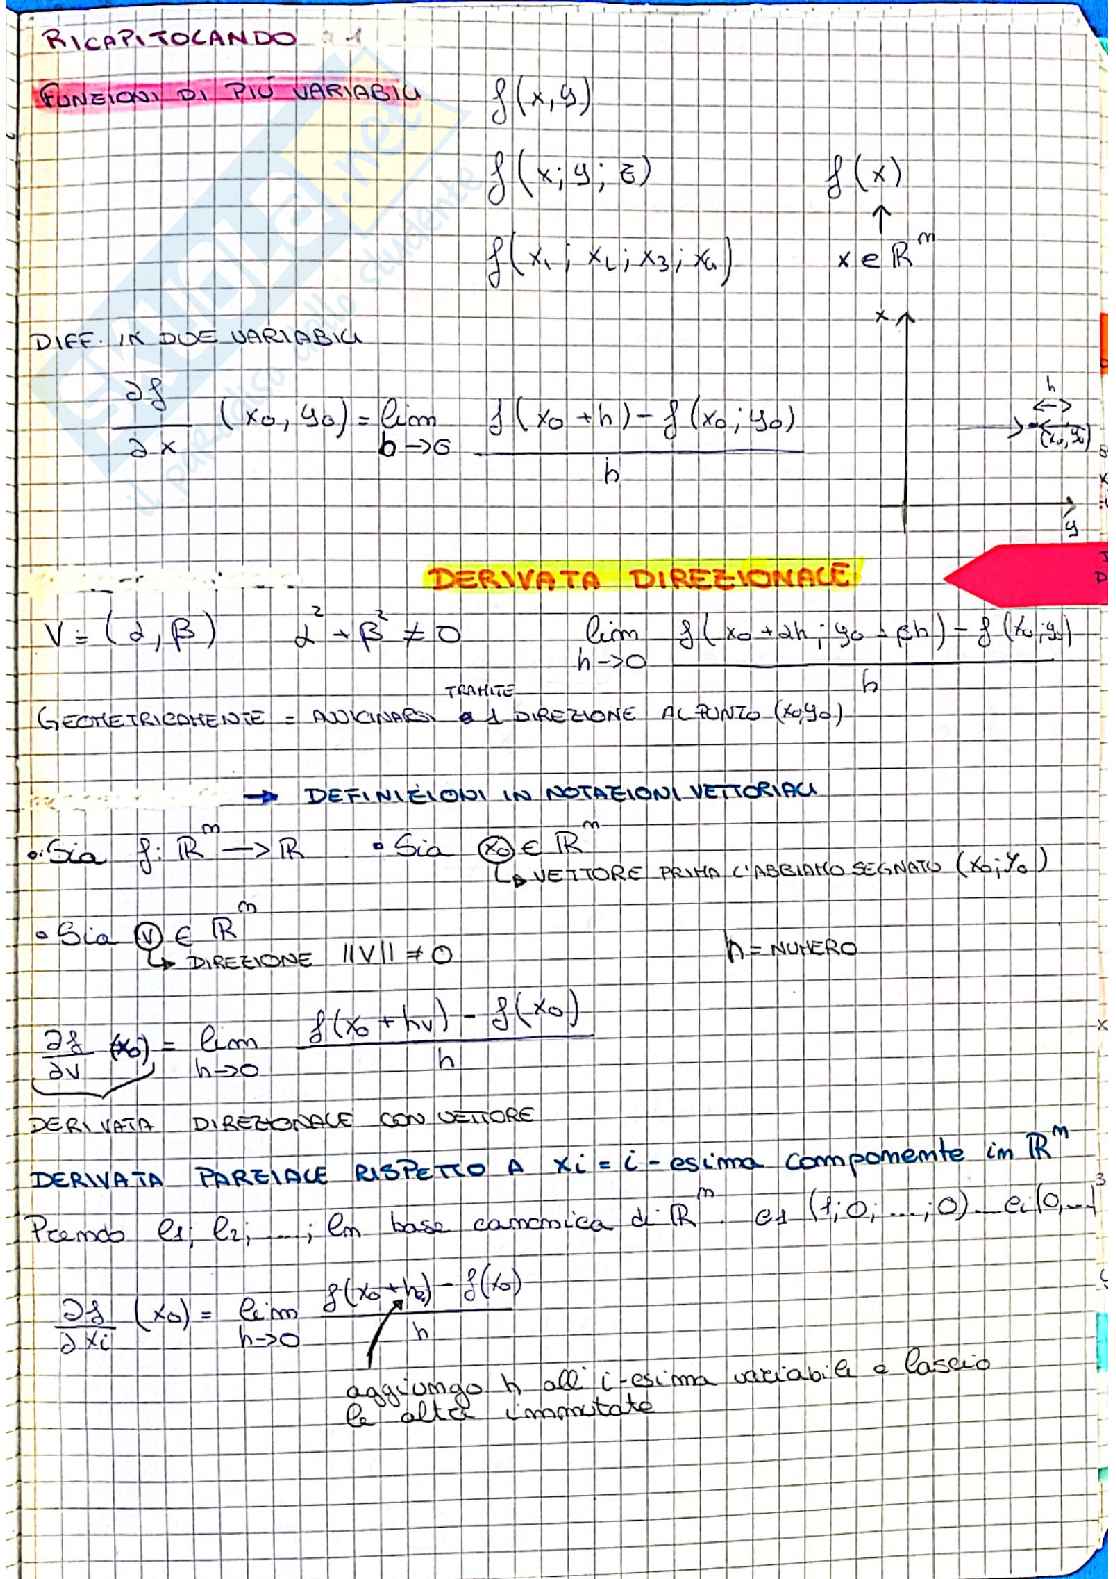 RICAPITOLANDO
FUNZIONI DI PIÙ VARIABILI f(x,y)
f(x;y;z) f(x)
↑
f(x₁; x₂; x₃; x₄) x ∈ ℝⁿ
DIFF. IN DUE VARIABILI x
∂f/∂x (x₀, y₀) = lim h→0 f(x₀+h) - f(x₀;y₀) / h
h
(x₀,y₀)
y
DERIVATA DIREZIONALE
V = (α, β) α² + β² ≠ 0 lim h→0 f(x₀+αh; y₀ = βh) - f(x₀;y₀) / h
TRAMITE
GEOMETRICAMENTE = AVVICINARSI 1 DIREZIONE AL PUNTO (x₀,y₀)
→ DEFINIZIONI IN NOTAZIONI VETTORIALI
• Sia f: ℝⁿ → ℝ • Sia x₀ ∈ ℝⁿ
↳ VETTORE PRIMA L'ABBIAMO SEGNATO (x₀; y₀)
• Sia v ∈ ℝⁿ
↳ DIREZIONE ||V|| ≠ 0 h = NUMERO
∂f/∂v (x₀) = lim h→0 f(x₀+hv) - f(x₀) / h
DERIVATA DIREZIONALE CON VETTORE
DERIVATA PARZIALE RISPETTO A xi = i-esima componente in ℝⁿ
Prendo e₁; e₂; ....; en base canonica di ℝⁿ e₁ (1; 0; ...; 0) ... ei (0,...
∂f/∂xi (x₀) = lim h→0 f(x₀+he) - f(x₀) / h
aggiungo h all' i-esima variabile e lascio
le altre immutate
SKUOLA.net
il paradiso dello studente